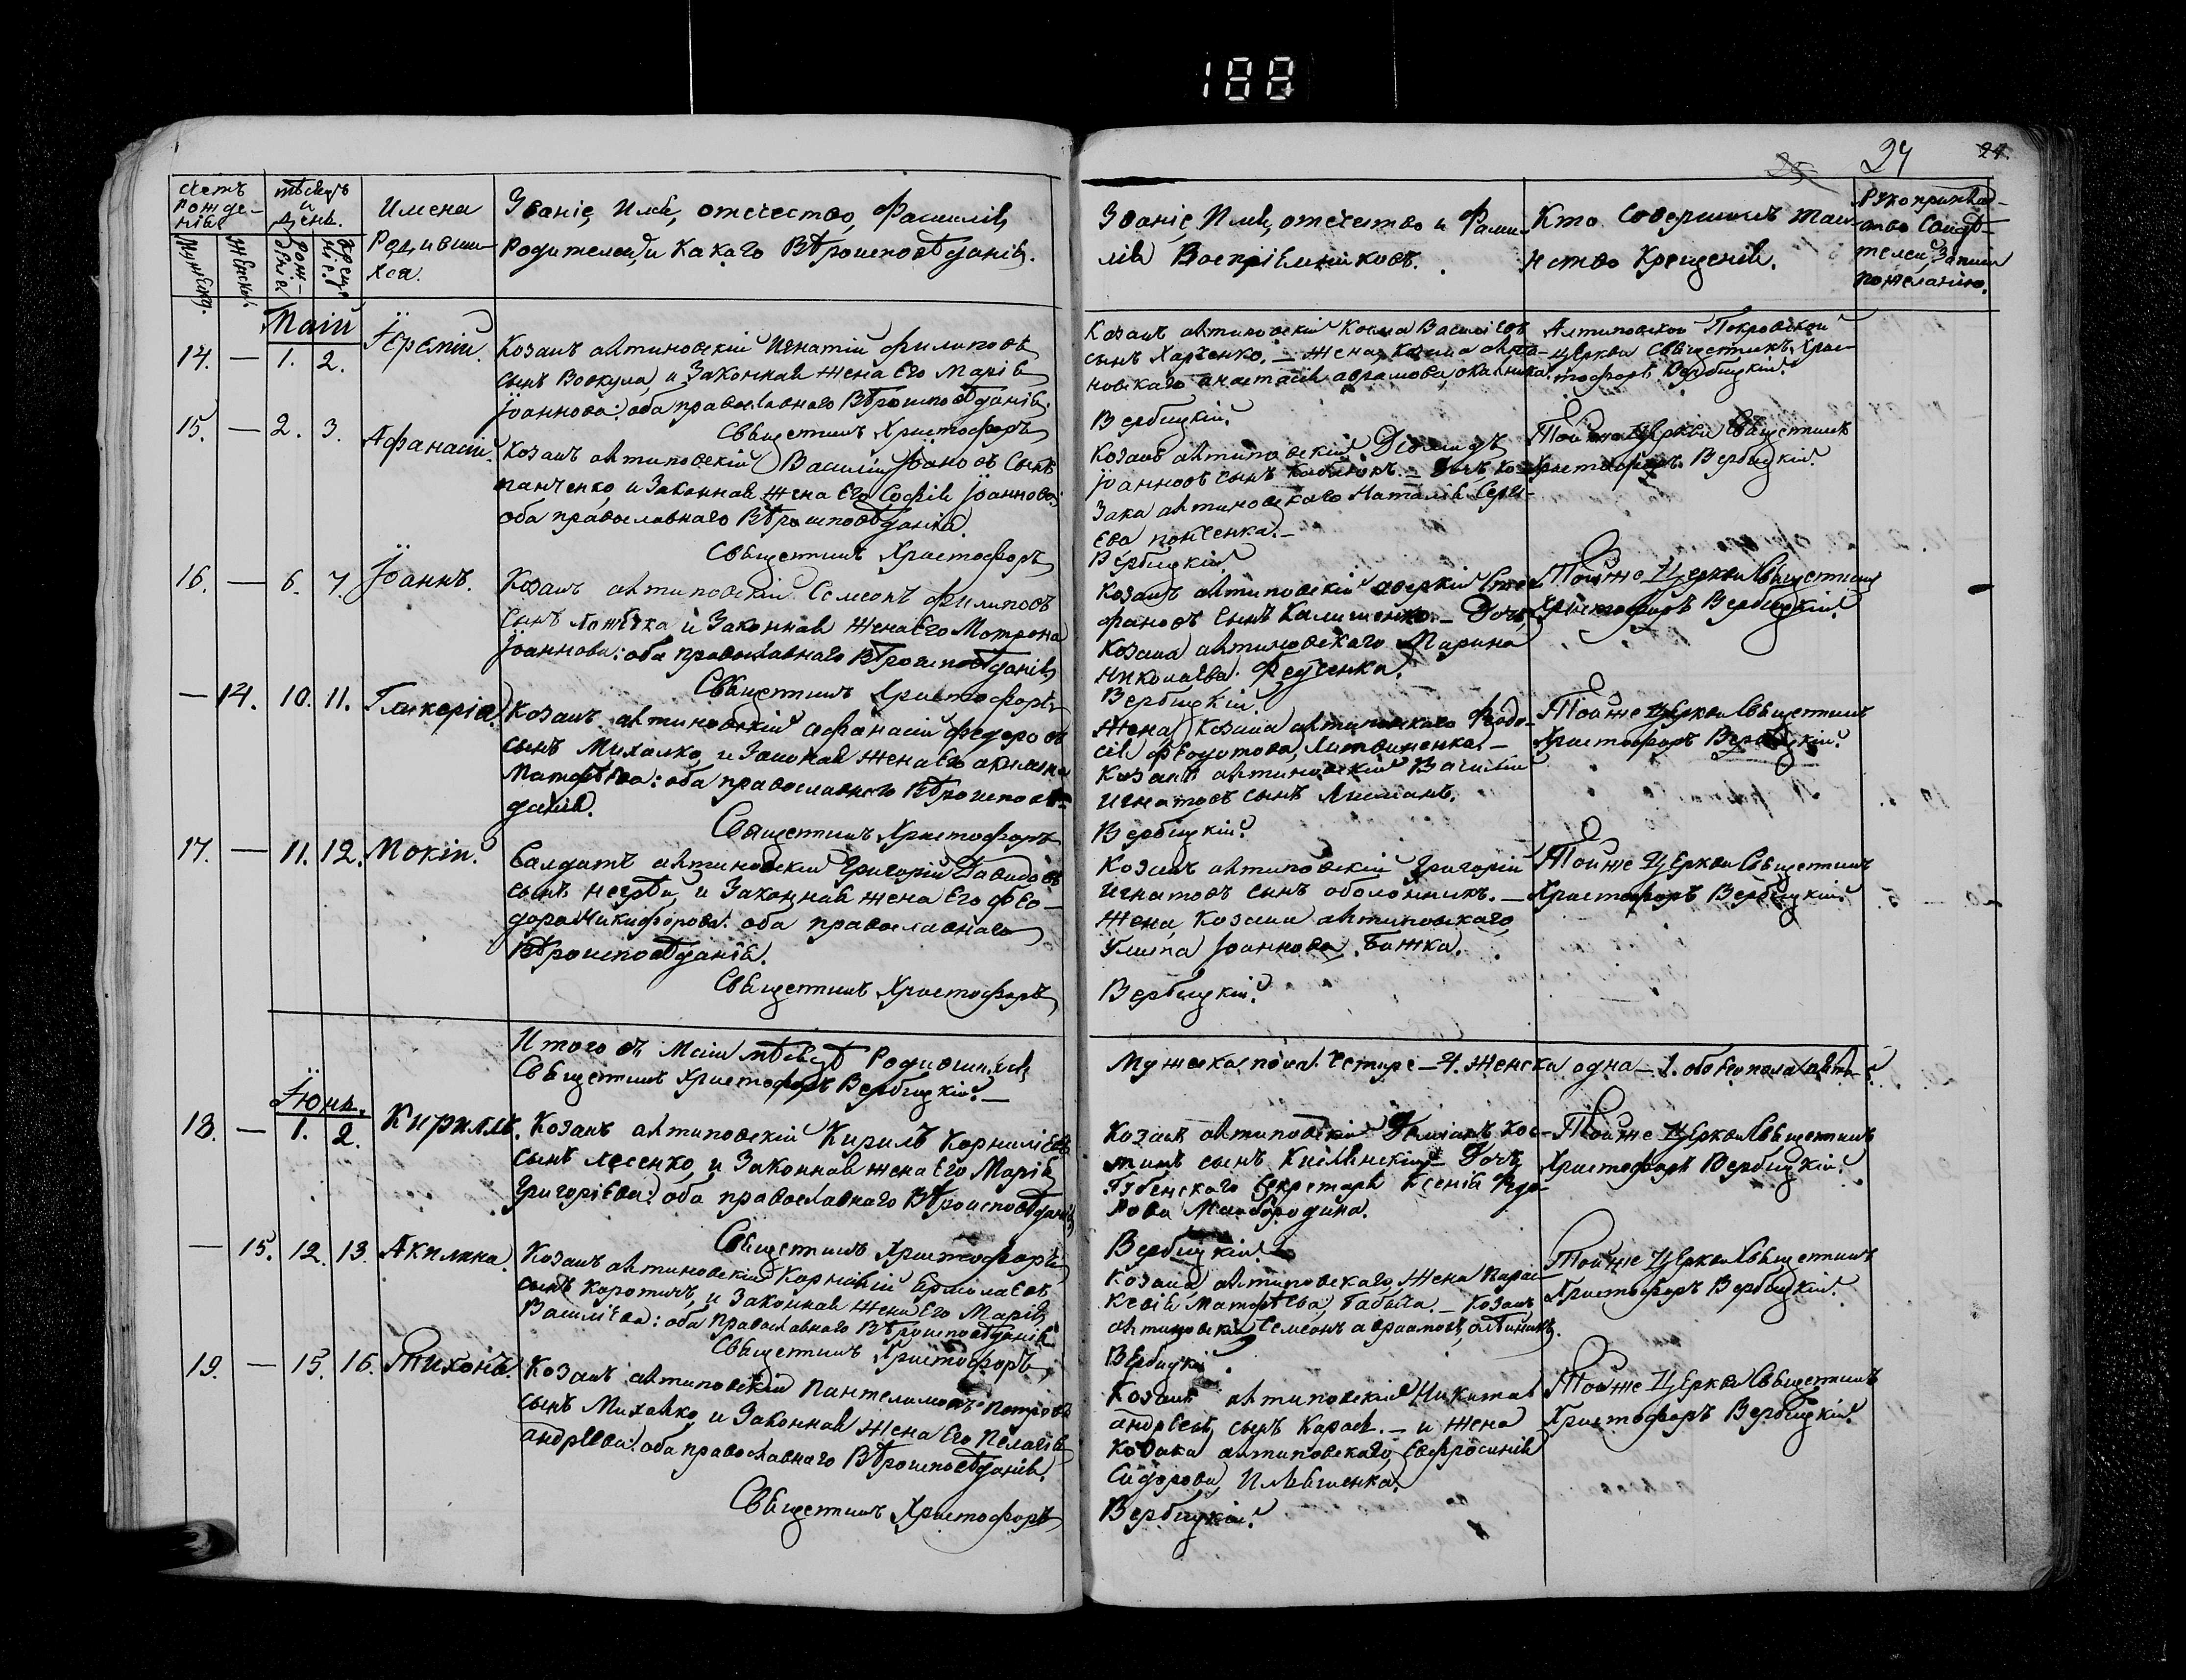 188
24
24.
Счетъ рождение
Мужеска.
Женска.
Мѣсяцъ и день.
Рождение
Крещение
Имена Родившихся.
Званіе, Имя, отечество, Фамилія,
Родителей, и Какаго Вѣроисповѣданія.
Званіе, Имя, отечество и Фами-
лія Воспріемниковъ.
Кто Совершилъ таи-
нство Крещенія.
Рукоприклад-
ство Свидѣ-
телей Записи
пожеланію.
Маій
14. — 1. 2. Іеремій.
Козакъ алтиновскій Игнатій Филиповъ
сынъ и Законная жена Его Марія
Іоаннова: оба православнаго Вѣроисповѣданія.
Священникъ Христофоръ
Козакъ алтиновскій Косма Василіевъ
сынъ Харченко. — жена Козака алти-
новскаго анастасія аврамова
Вербицкій.
Алтиновской Покровской
церкви Священникъ Хрис-
тофоръ Вербицкій.
15. — 2. 3. Афанасій.
Козакъ алтиновскій Василій Іоановъ Сынъ
панченко и Законная жена Его Софія Іоаннова:
оба православнаго Вѣроисповѣданія.
Священникъ Христофоръ
Козакъ алтиновскій Діомидъ
Іоанновъ сынъ — Дочь Ко-
зака алтиновскаго Наталія Серге-
ева панченка. —
Вербицкій.
Той же Церкви Священникъ
Христофоръ Вербицкій.
16. — 6. 7. Іоаннъ.
Козакъ алтиновскій Семеонъ Филиповъ
Сынъ и Законная жена Его Мотрона
Іоаннова: оба православнаго Вѣроисповѣданія,
Священникъ Христофоръ
Козакъ алтиновскій аверкій Сте-
фановъ Сынъ — Дочь
Козака алтиновскаго Марина
Николаева Федченка.
Вербицкій.
Той же Церкви Священникъ
Христофоръ Вербицкій.
— 14. 10. 11. Гликерія
Козакъ алтиновскій афанасій Федоровъ
сынъ Михалко, и Законная жена Его акилина
Матфѣева: оба православнаго Вѣроисповѣ-
данія.
Священникъ Христофоръ
Жена Козака алтиновскаго Феодо-
сія Федотова, Литвиненка. —
Козакъ алтиновскій Василій
Игнатовъ сынъ Лисманъ.
Вербицкій.
Той же Церкви Священникъ
Христофоръ Вербицкій.
17. — 11. 12. Мокій.
Салдатъ алтиновскій Григорій Давидовъ
сынъ и Законная жена Его Фео-
дора Никифорова: оба православнаго
Вѣроисповѣданія.
Священникъ Христофоръ
Козакъ алтиновскій Григорій
Игнатовъ сынъ оболонникъ. —
Жена, Козака алтиновскаго,
Улита Іоаннова, Бажка.
Вербицкій.
Той же Церкви Священникъ
Христофоръ Вербицкій.
Итого въ Маіи мѣсяцѣ Родившихся
Священникъ Христофоръ Вербицкій. —
Мужеска пола Четыре — 4. Женска одна — 1. обоего пола пять
Іюнь.
18. — 1. 2. Кириллъ.
Козакъ алтиновскій Кирилъ Корниліевъ
сынъ лесенко, и Законная жена Его Марія
Григоріева: оба православнаго Вѣроисповѣданія
Священникъ Христофоръ
Козакъ алтиновскій Даміанъ Кос-
тинъ сынъ — Дочь
Губенскаго Секретаря Ксенія Федо-
рова Майбородина.
Вербицкій
Той же Церкви Священникъ
Христофоръ Вербицкій.
— 15. 12. 13. Акилина.
Козакъ алтиновскій Корнилій Ермолаевъ
сынъ Коротичъ, и Законная жена Его Марія
Василіева: оба Православнаго Вѣроисповѣданія
Священникъ Христофоръ
Козака, алтиновскаго, жена Парас-
кевія Матфѣева, Габыча. — Козакъ
алтиновскій Семеонъ аврамовъ
Вербицкій.
Той же Церкви Священникъ
Христофоръ Вербицкій.
19. — 15. 16. Тихонъ.
Козакъ алтиновскій Пантелимонъ Петровъ
сынъ Михалко, и Законная жена Его Пелагія
андрѣева: оба православнаго Вѣроисповѣданія.
Священникъ Христофоръ
Козакъ алтиновскій Никита
андрѣевъ, сынъ Карась. — и жена
Козака алтиновскаго, Евфросинія
Сидорова, Ильяшенка.
Вербицкій.
Той же Церкви Священникъ
Христофоръ Вербицкій.